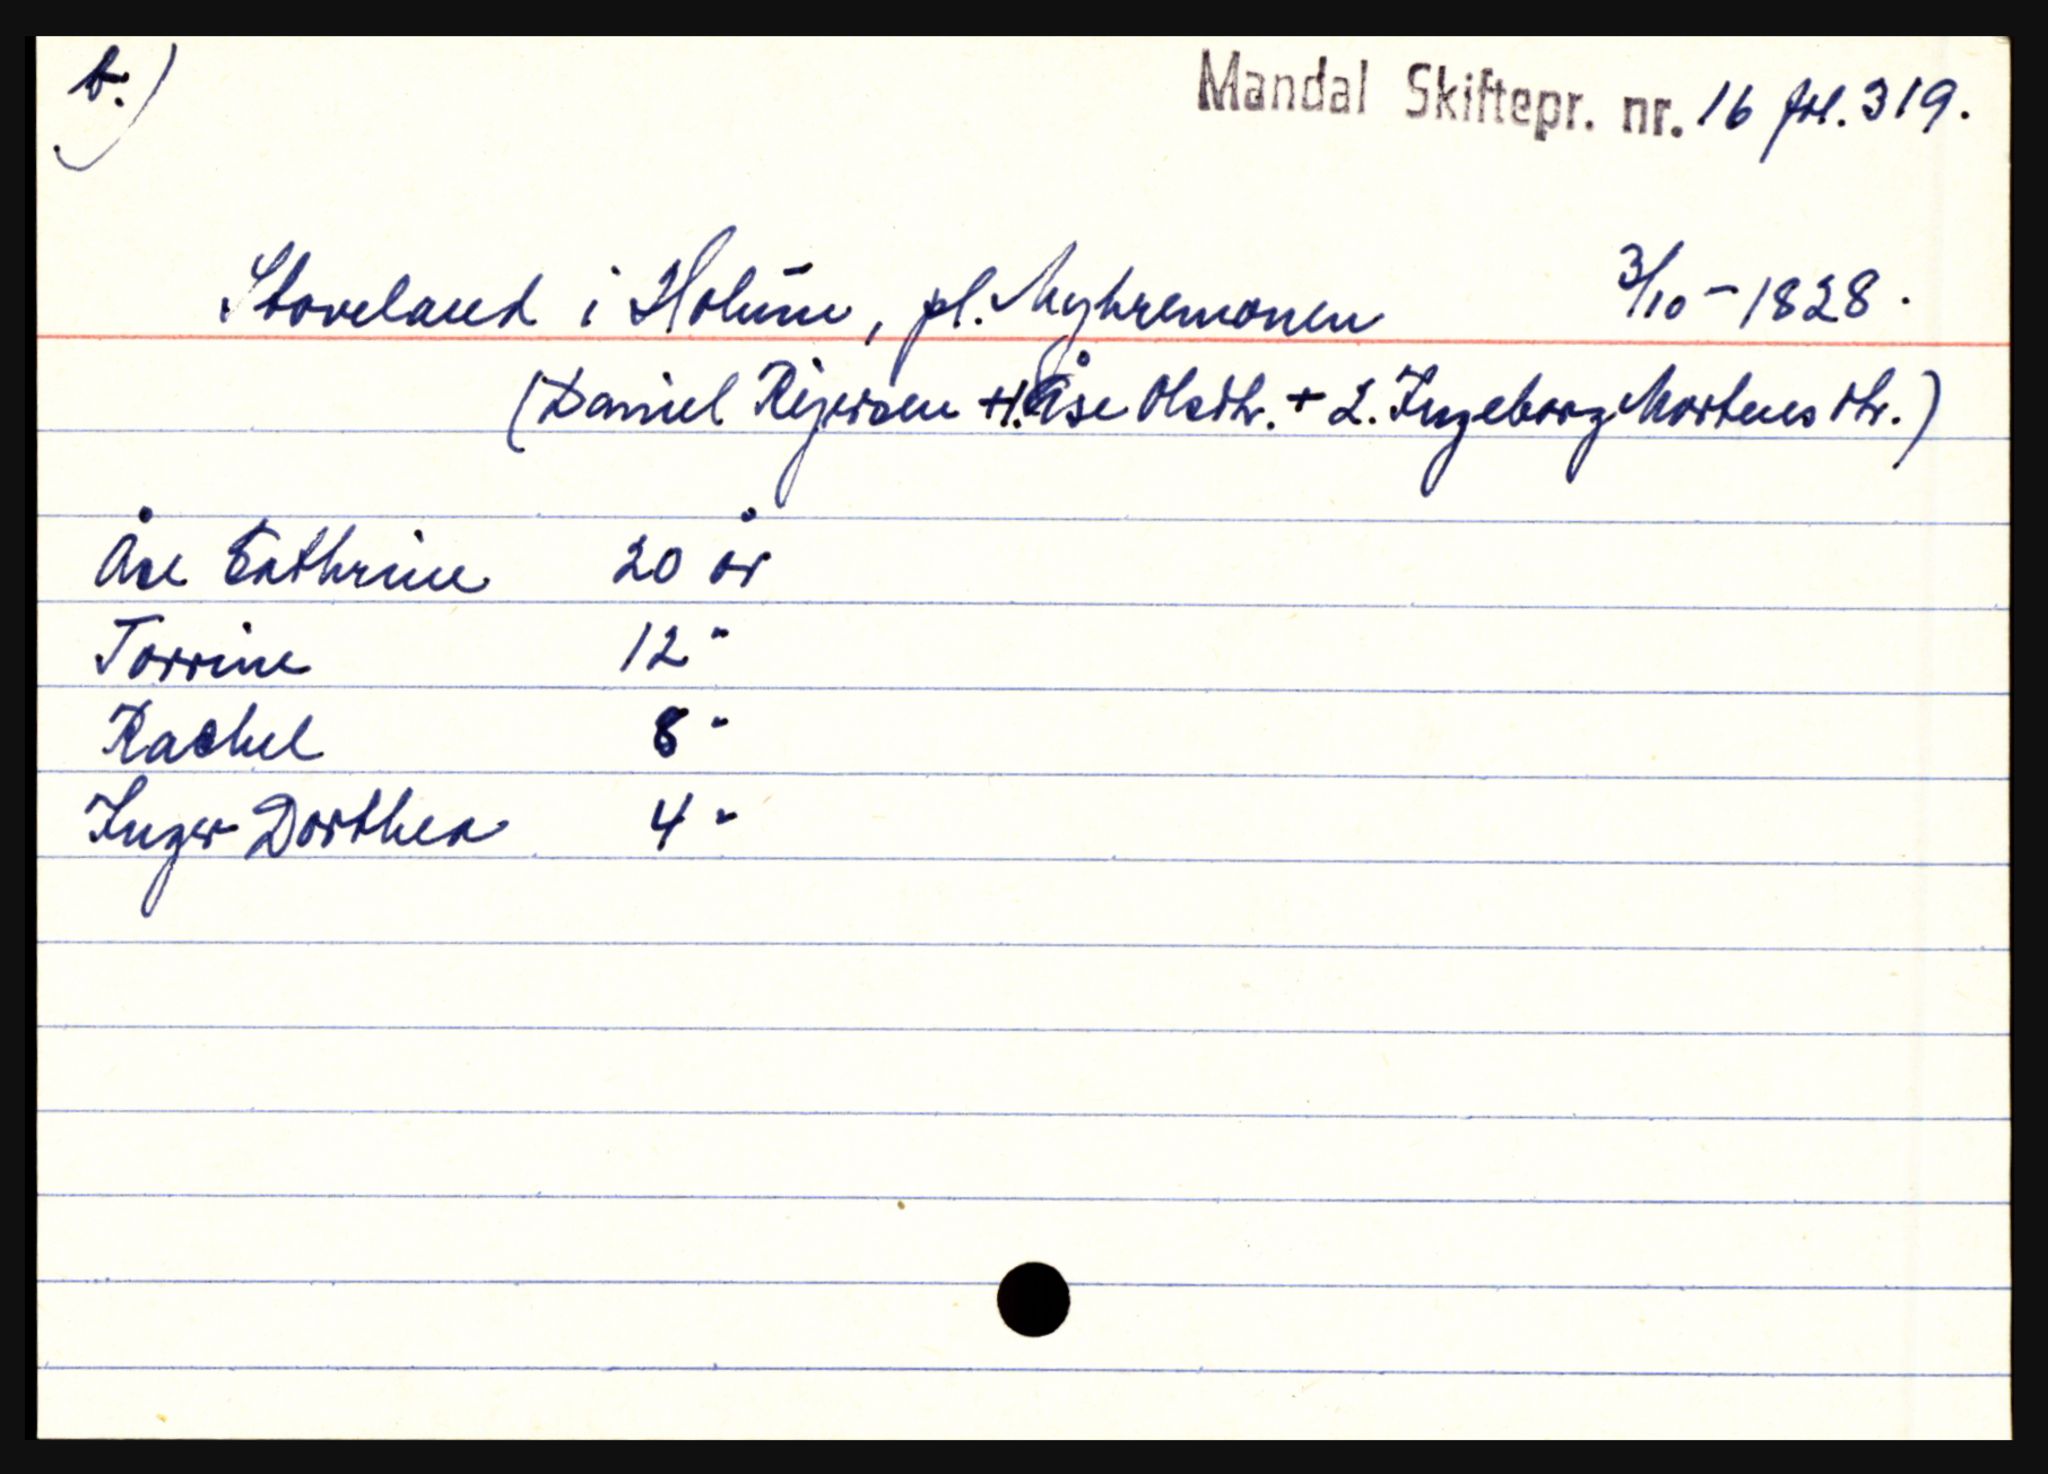 b.)
Mandal Skiftepr. nr. 16 fol. 319.
Stoveland i Holum, pl. Myhremonen 3/10 - 1828.
(Daniel Rejersen + 1. Åse Olsdtr. + 2. Ingeborg Mortensdtr.)
Åse Cathrine 20 år
Torrine 12 "
Rachel 8 "
Inger Dorthea 4 "